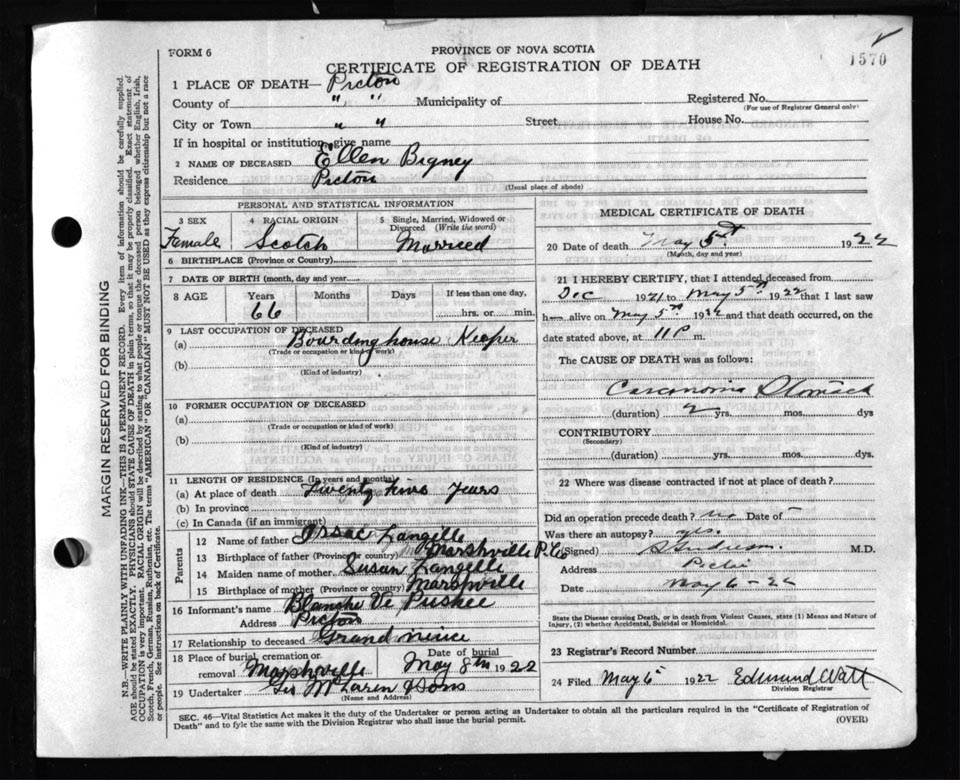 1570
FORM 6
PROVINCE OF NOVA SCOTIA
CERTIFICATE OF REGISTRATION OF DEATH
1 PLACE OF DEATH— Pictou
County of " " Municipality of Registered No.
(For use of Registrar General only)
City or Town " " Street House No.
If in hospital or institution, give name
2 NAME OF DECEASED Ellen Bigney
Residence Pictou
(Usual place of abode)
PERSONAL AND STATISTICAL INFORMATION
3 SEX 4 RACIAL ORIGIN 5 Single, Married, Widowed or Divorced (Write the word)
Female Scotch Married
6 BIRTHPLACE (Province or Country)
7 DATE OF BIRTH (month, day and year)
8 AGE Years Months Days If less than one day,
66 hrs. or min.
9 LAST OCCUPATION OF DECEASED
(a) Boarding house Keeper
(Trade or occupation or kind of work)
(b)
(Kind of industry)
10 FORMER OCCUPATION OF DECEASED
(a)
(Trade or occupation or kind of work)
(b)
(Kind of industry)
11 LENGTH OF RESIDENCE (In years and months)
(a) At place of death Twenty Years
(b) In province
(c) In Canada (if an immigrant)
Parents
12 Name of father Issac Langille
13 Birthplace of father (Province or country) Marshville P. Co
14 Maiden name of mother Susan Langille
15 Birthplace of mother (Province or country) Marshville
16 Informant's name Blanche
Address Pictou
17 Relationship to deceased Grand niece
18 Place of burial, cremation or removal Marshville Date of burial May 8th 1922
19 Undertaker Geo McLaren & Sons
(Name and Address)
MEDICAL CERTIFICATE OF DEATH
20 Date of death May 5th 1922
(Month, day and year)
21 I HEREBY CERTIFY, that I attended deceased from
Dec 1921 to May 5th 1922 that I last saw
h— alive on May 5th 1922 and that death occurred, on
date stated above, at 11 P m.
The CAUSE OF DEATH was as follows:
Carcinoma Stomach
(duration) 2 yrs. mos. dys
CONTRIBUTORY
(Secondary)
(duration) yrs. mos. dys.
22 Where was disease contracted if not at place of death?
Did an operation precede death? no Date of —
Was there an autopsy? yes.
(Signed) M.D.
Address Pictou
Date May 6 - 22
State the Disease causing Death, or in death from Violent Causes, state (1) Means and Nature
of Injury, (2) whether Accidental, Suicidal or Homicidal.
23 Registrar's Record Number
24 Filed May 6 1922 Edmund Watt
Division Registrar
SEC. 46—Vital Statistics Act makes it the duty of the Undertaker or person acting as Undertaker to obtain all the particulars required in the "Certificate of Registration of
Death" and to fyle the same with the Division Registrar who shall issue the burial permit. (OVER)
MARGIN RESERVED FOR BINDING
N.B.—WRITE PLAINLY WITH UNFADING INK—THIS IS A PERMANENT RECORD. Every item of information should be carefully supplied.
AGE should be stated EXACTLY. PHYSICIANS should STATE CAUSE OF DEATH in plain terms, so that it may be properly classified. Exact statement of
OCCUPATION is very important. RACIAL ORIGIN will be described by stating to what people or tongue the deceased person belonged whether English, Irish,
Scotch, French, German, Russian, Ruthenian, etc. The terms "AMERICAN" OR "CANADIAN" MUST NOT BE USED as they express citizenship but not a race
or people. See instructions on back of Certificate.